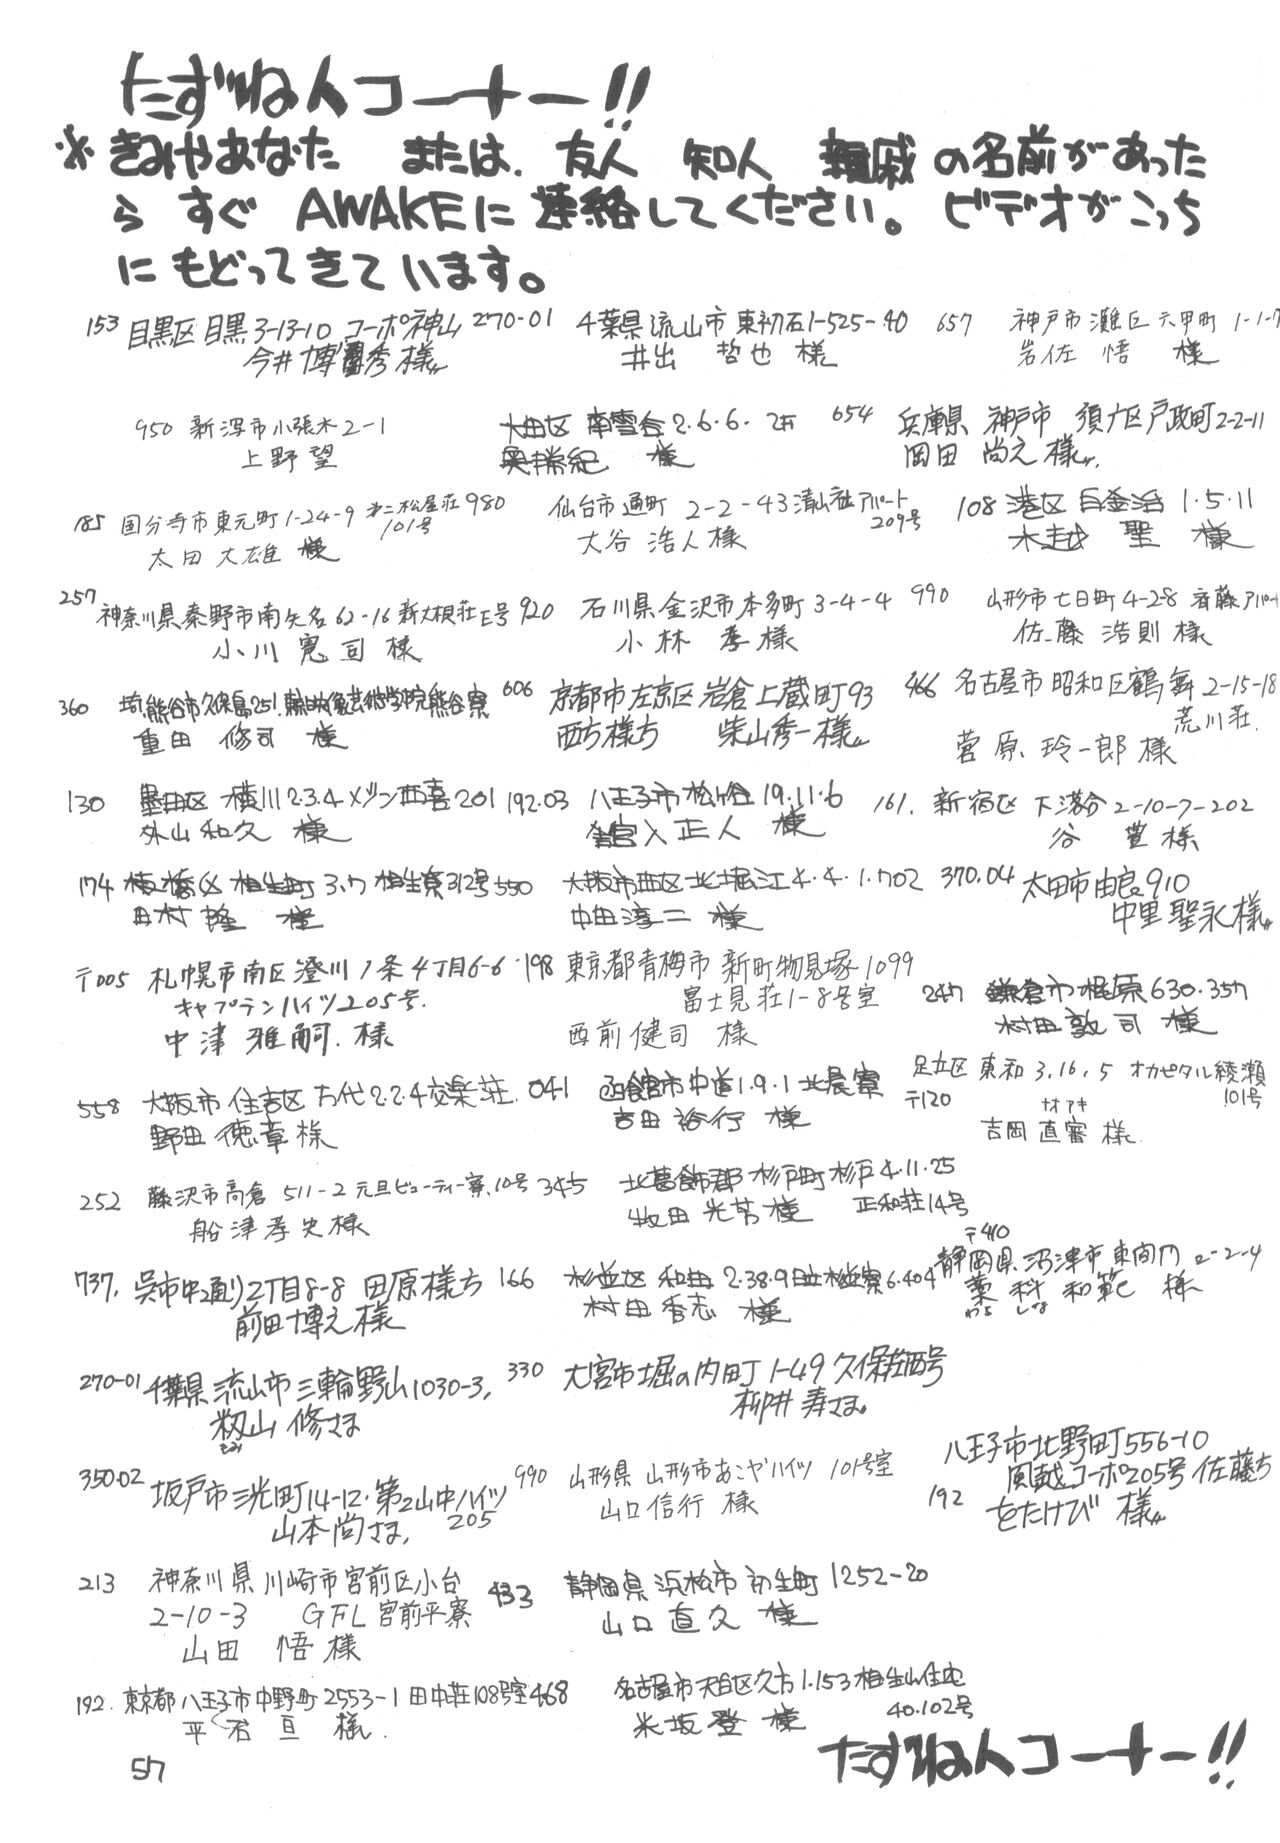 たずね人コーナー!!
※きみやあなた または、友人 知人 親戚 の名前があった
ら すぐ AWAKEに連絡してください。ビデオがこっち
にもどってきています。
153 目黒区目黒3-13-10 コーポ神山
今井博秀様
270-01 千葉県流山市東初石1-525-40
井出 哲也 様
657 神戸市灘区六甲町 1-1-7
岩佐 悟 様
950 新潟市小張木2-1
上野望
大田区 南雪谷2.6.6.
奥 様
654 兵庫県 神戸市 須广区戸政町2-2-11
岡田 尚之様
185 国分寺市東元町1-24-9 第二松屋荘
101号
太田大雄 様
980 仙台市通町 2-2-43 清山荘アパート
209号
大谷浩人様
108 港区 白金台 1.5.11
木越 聖 様
257 神奈川県秦野市南矢名62-16 新大根荘E号
小川憲司様
920 石川県金沢市本多町3-4-4
小林 孝様
990 山形市七日町4-28 斉藤アパート
佐藤浩則様
360 埼 熊谷市久保島251. 熊谷寮
重田 修司 様
606 京都市左京区岩倉上蔵町93
西方様方 柴山秀一様
466 名古屋市昭和区鶴舞2-15-18
荒川荘.
菅原玲一郎様
130 墨田区 横川2.3.4メゾン西喜201
外山和久 様
192.03 八王子市松が谷19.11.6
宮入正人 様
161. 新宿区下落合2-10-7-202
谷 豊様
174 板橋区 相生町3.7 相生寮312号
田村 隆 様
550 大阪市西区北堀江4.4.1.702
中田淳二 様
370.04 太田市由良910
中里聖永様
〒005 札幌市南区澄川7条4丁目6-6
キャプテンハイツ205号.
中津雅嗣.様
198 東京都青梅市新町物見塚1099
富士見荘1-8号室
西前健司 様
247 鎌倉市梶原630.357
村田敦司 様
558 大阪市住吉区万代2.2.4交楽荘.
野田徳章様
041 函館市中道1.9.1北晨寮
吉田裕行 様
足立区 東和3.16.5 オカピタル綾瀬
〒120 101号
ナオアキ
吉岡直審様
252 藤沢市高倉 511-2 元旦ビューティー寮.10号
船津孝史様
345 北葛飾郡杉戸町杉戸4.11.25
牧田光芳様 正和荘14号
〒410
静岡県沼津市東間門2-2-4
藁科和範 様
わら しな
737. 呉市中通り2丁目8-8 田原様方
前田博之様
166 杉並区 和田2.38.9日立杉並寮6.404
村田秀志 様
270-01 千葉県流山市三輪野山1030-3,
籾山修さま
もみ
330 大宮市堀の内町1-49久保荘西号
柳井寿さま。
350-02 坂戸市三光町14-12.第2山中ハイツ
205
山本尚さま,
990 山形県 山形市あこやハイツ 101号室
山口信行 様
八王子市北野町556-10
風越コーポ205号佐藤方
192 をたけび 様
213 神奈川県川崎市宮前区小台
2-10-3 GFL宮前平寮
山田 悟様
433 静岡県浜松市初生町1252-20
山口直久 様
192. 東京都八王子市中野町2553-1 田中荘108号室
平石 亘 様.
468 名古屋市天白区久方1.153相生山住宅
40.102号
米坂登 様
たずね人コーナー!!
57